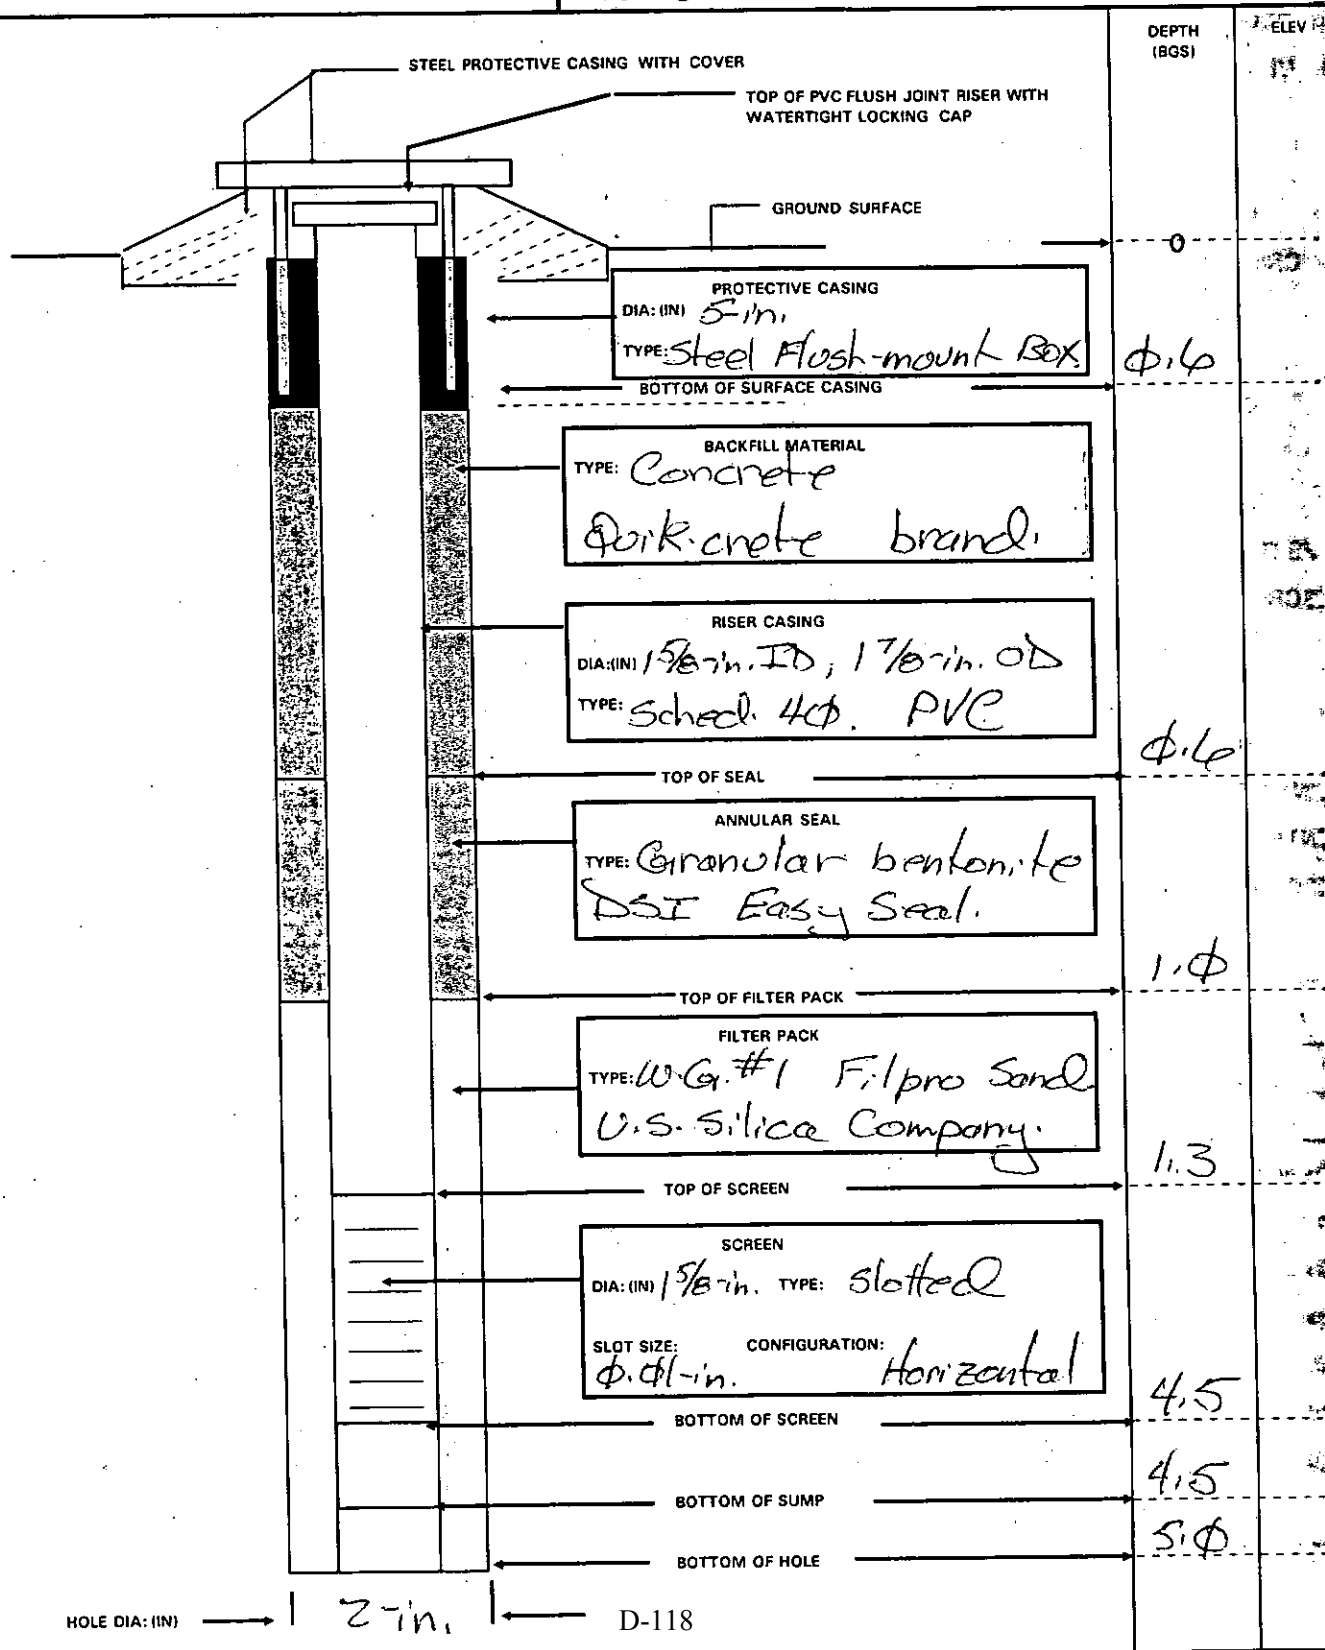 DEPTH
(BGS)
ELEV
STEEL PROTECTIVE CASING WITH COVER
TOP OF PVC FLUSH JOINT RISER WITH
WATERTIGHT LOCKING CAP
GROUND SURFACE
0
PROTECTIVE CASING
DIA: (IN) 5-in.
TYPE: Steel Flush-mount Box
0.6
BOTTOM OF SURFACE CASING
BACKFILL MATERIAL
TYPE: Concrete
Quik-crete brand.
RISER CASING
DIA:(IN) 1 5/8-in. ID, 1 7/8-in. OD
TYPE: Sched. 40. PVC
0.6
TOP OF SEAL
ANNULAR SEAL
TYPE: Granular bentonite
DSI Easy Seal.
1.0
TOP OF FILTER PACK
FILTER PACK
TYPE: W.G. #1 Filpro Sand
U.S. Silica Company.
1.3
TOP OF SCREEN
SCREEN
DIA: (IN) 1 5/8-in. TYPE: Slotted
SLOT SIZE: CONFIGURATION:
0.01-in. Horizontal
4.5
BOTTOM OF SCREEN
4.5
BOTTOM OF SUMP
5.0
BOTTOM OF HOLE
HOLE DIA: (IN) 2-in.
D-118